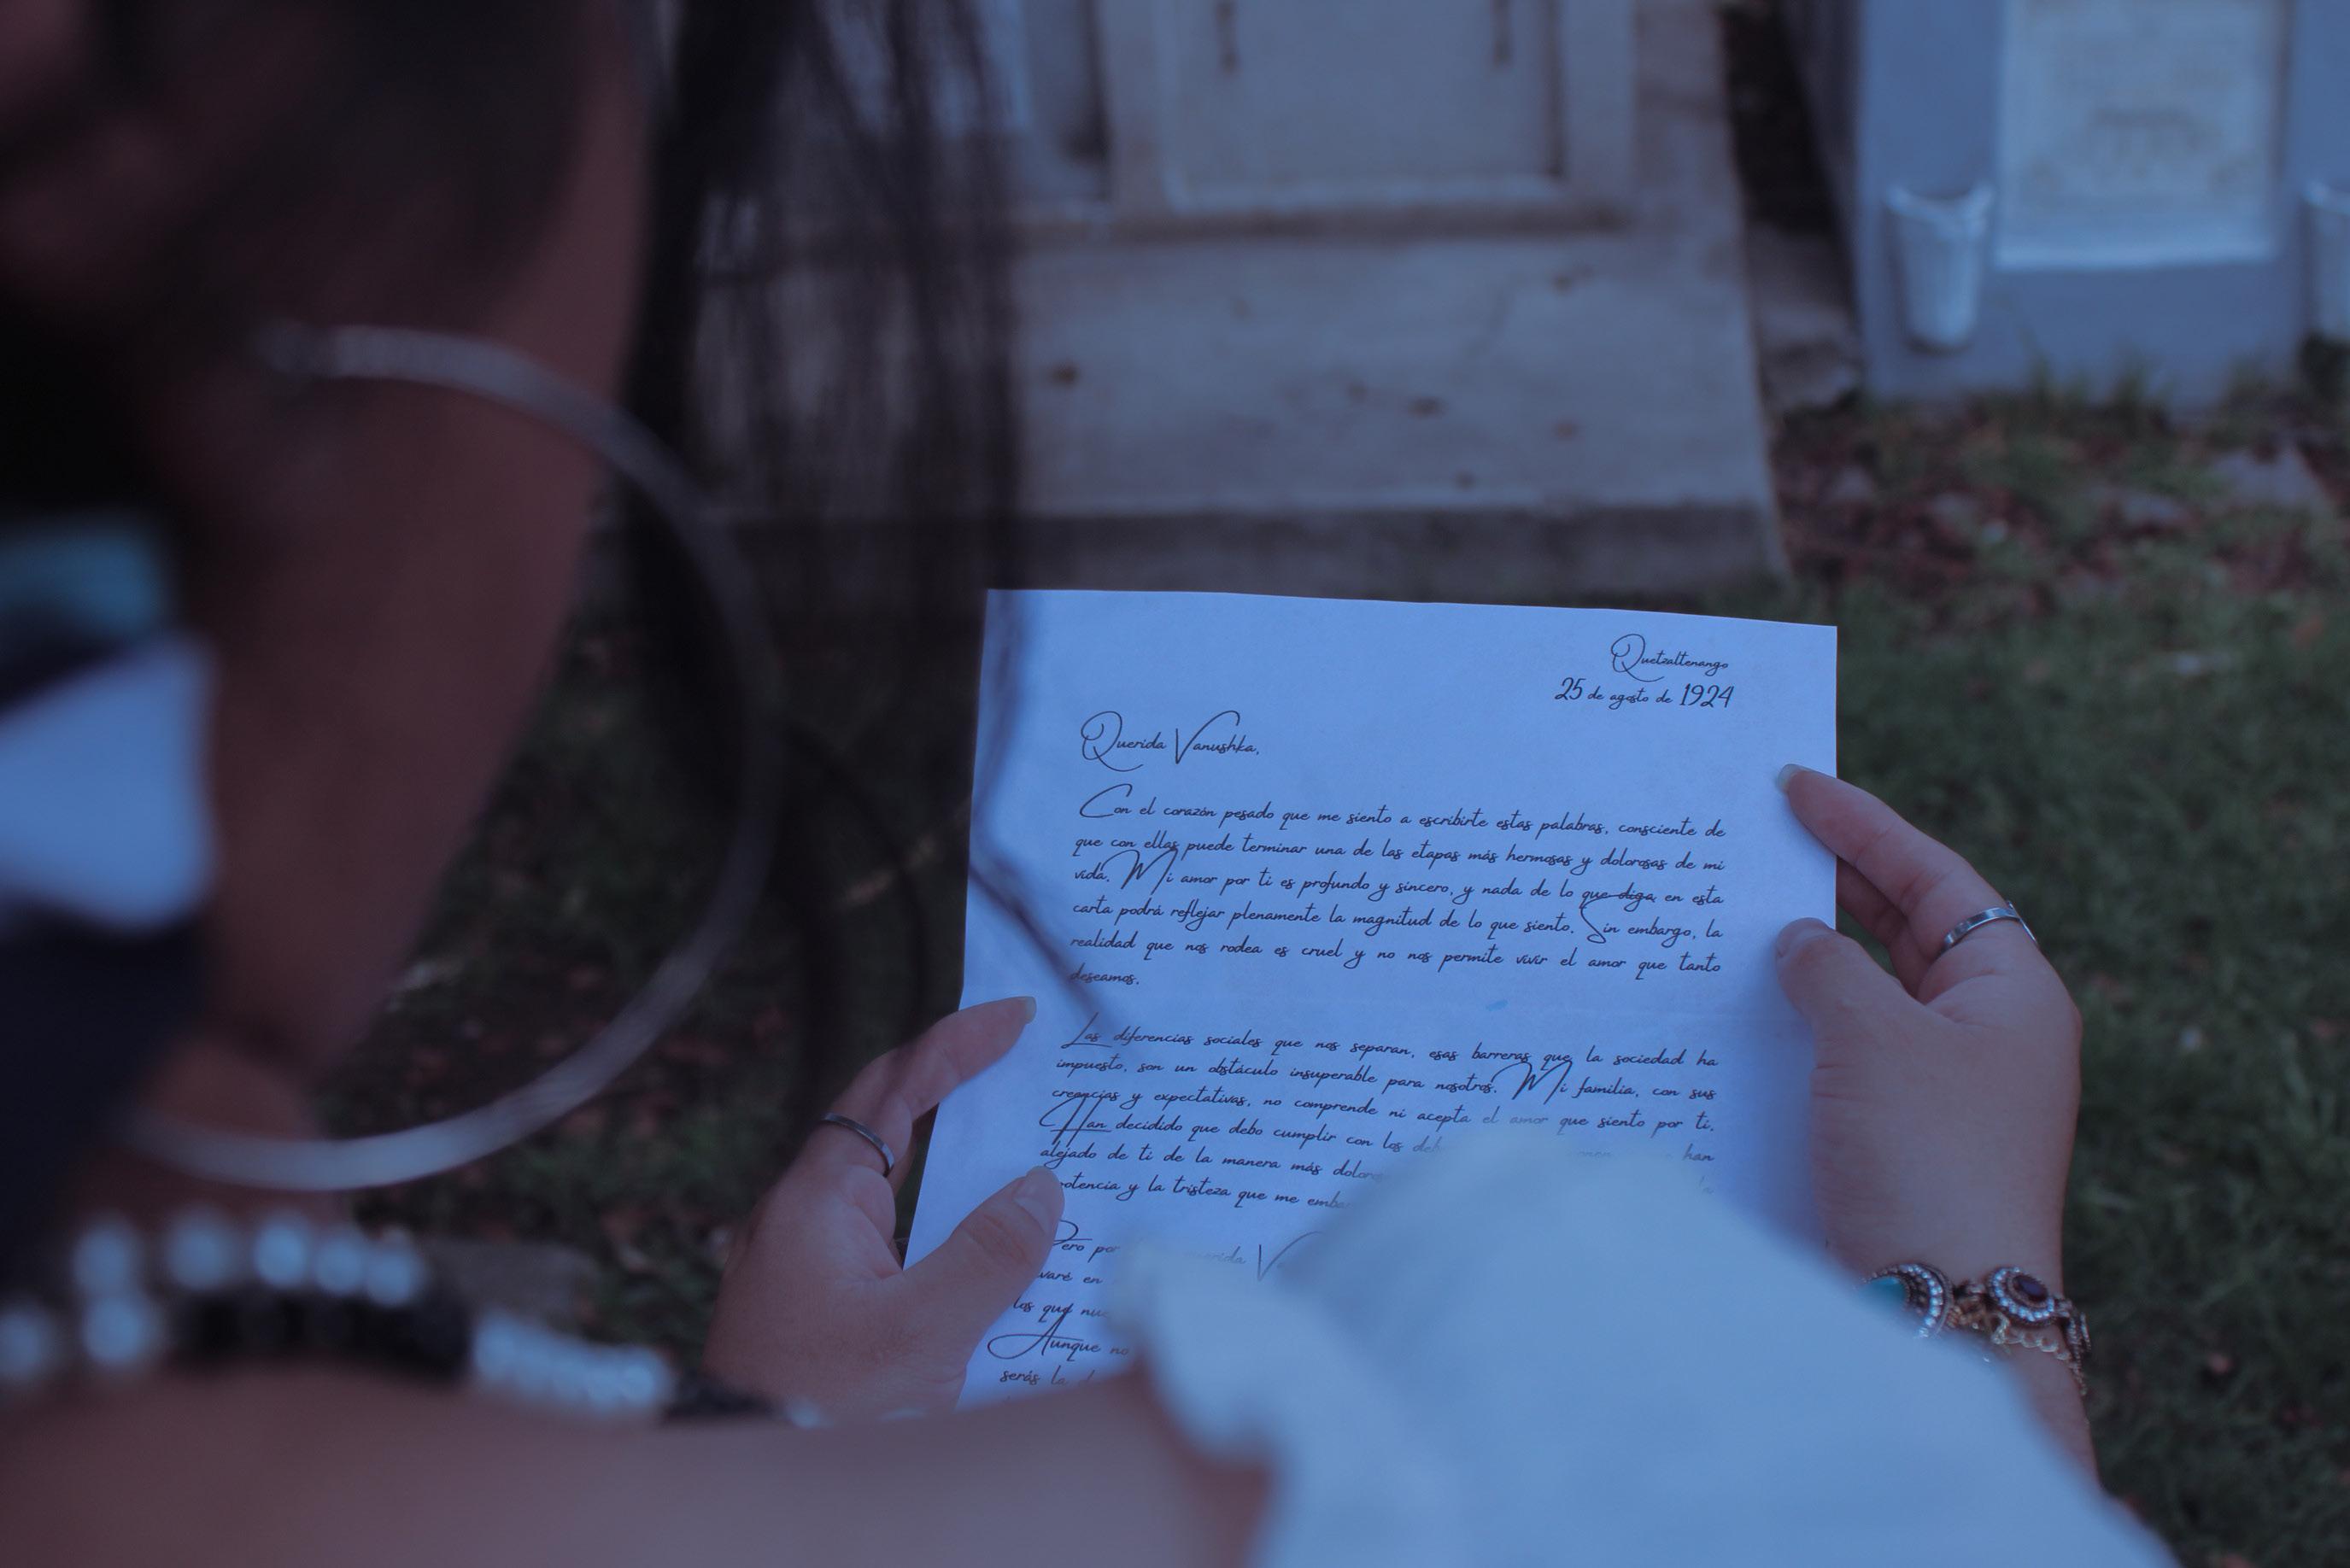 Quetzaltenango
25 de agosto de 1924
Querida Vanushka,
Con el corazón pesado que me siento a escribirte estas palabras, consciente de
que con ellas puede terminar una de las etapas más hermosas y dolorosas de mi
vida. Mi amor por ti es profundo y sincero, y nada de lo que diga en esta
carta podrá reflejar plenamente la magnitud de lo que siento. Sin embargo, la
realidad que nos rodea es cruel y no nos permite vivir el amor que tanto
deseamos.
Las diferencias sociales que nos separan, esas barreras que la sociedad ha
impuesto, son un obstáculo insuperable para nosotros. Mi familia, con sus
creencias y expectativas, no comprende ni acepta el amor que siento por ti.
Han decidido que debo cumplir con los han
alejado de ti de la manera más
potencia y la tristeza que me
Pero por
en
los que
Aunque no
serás la